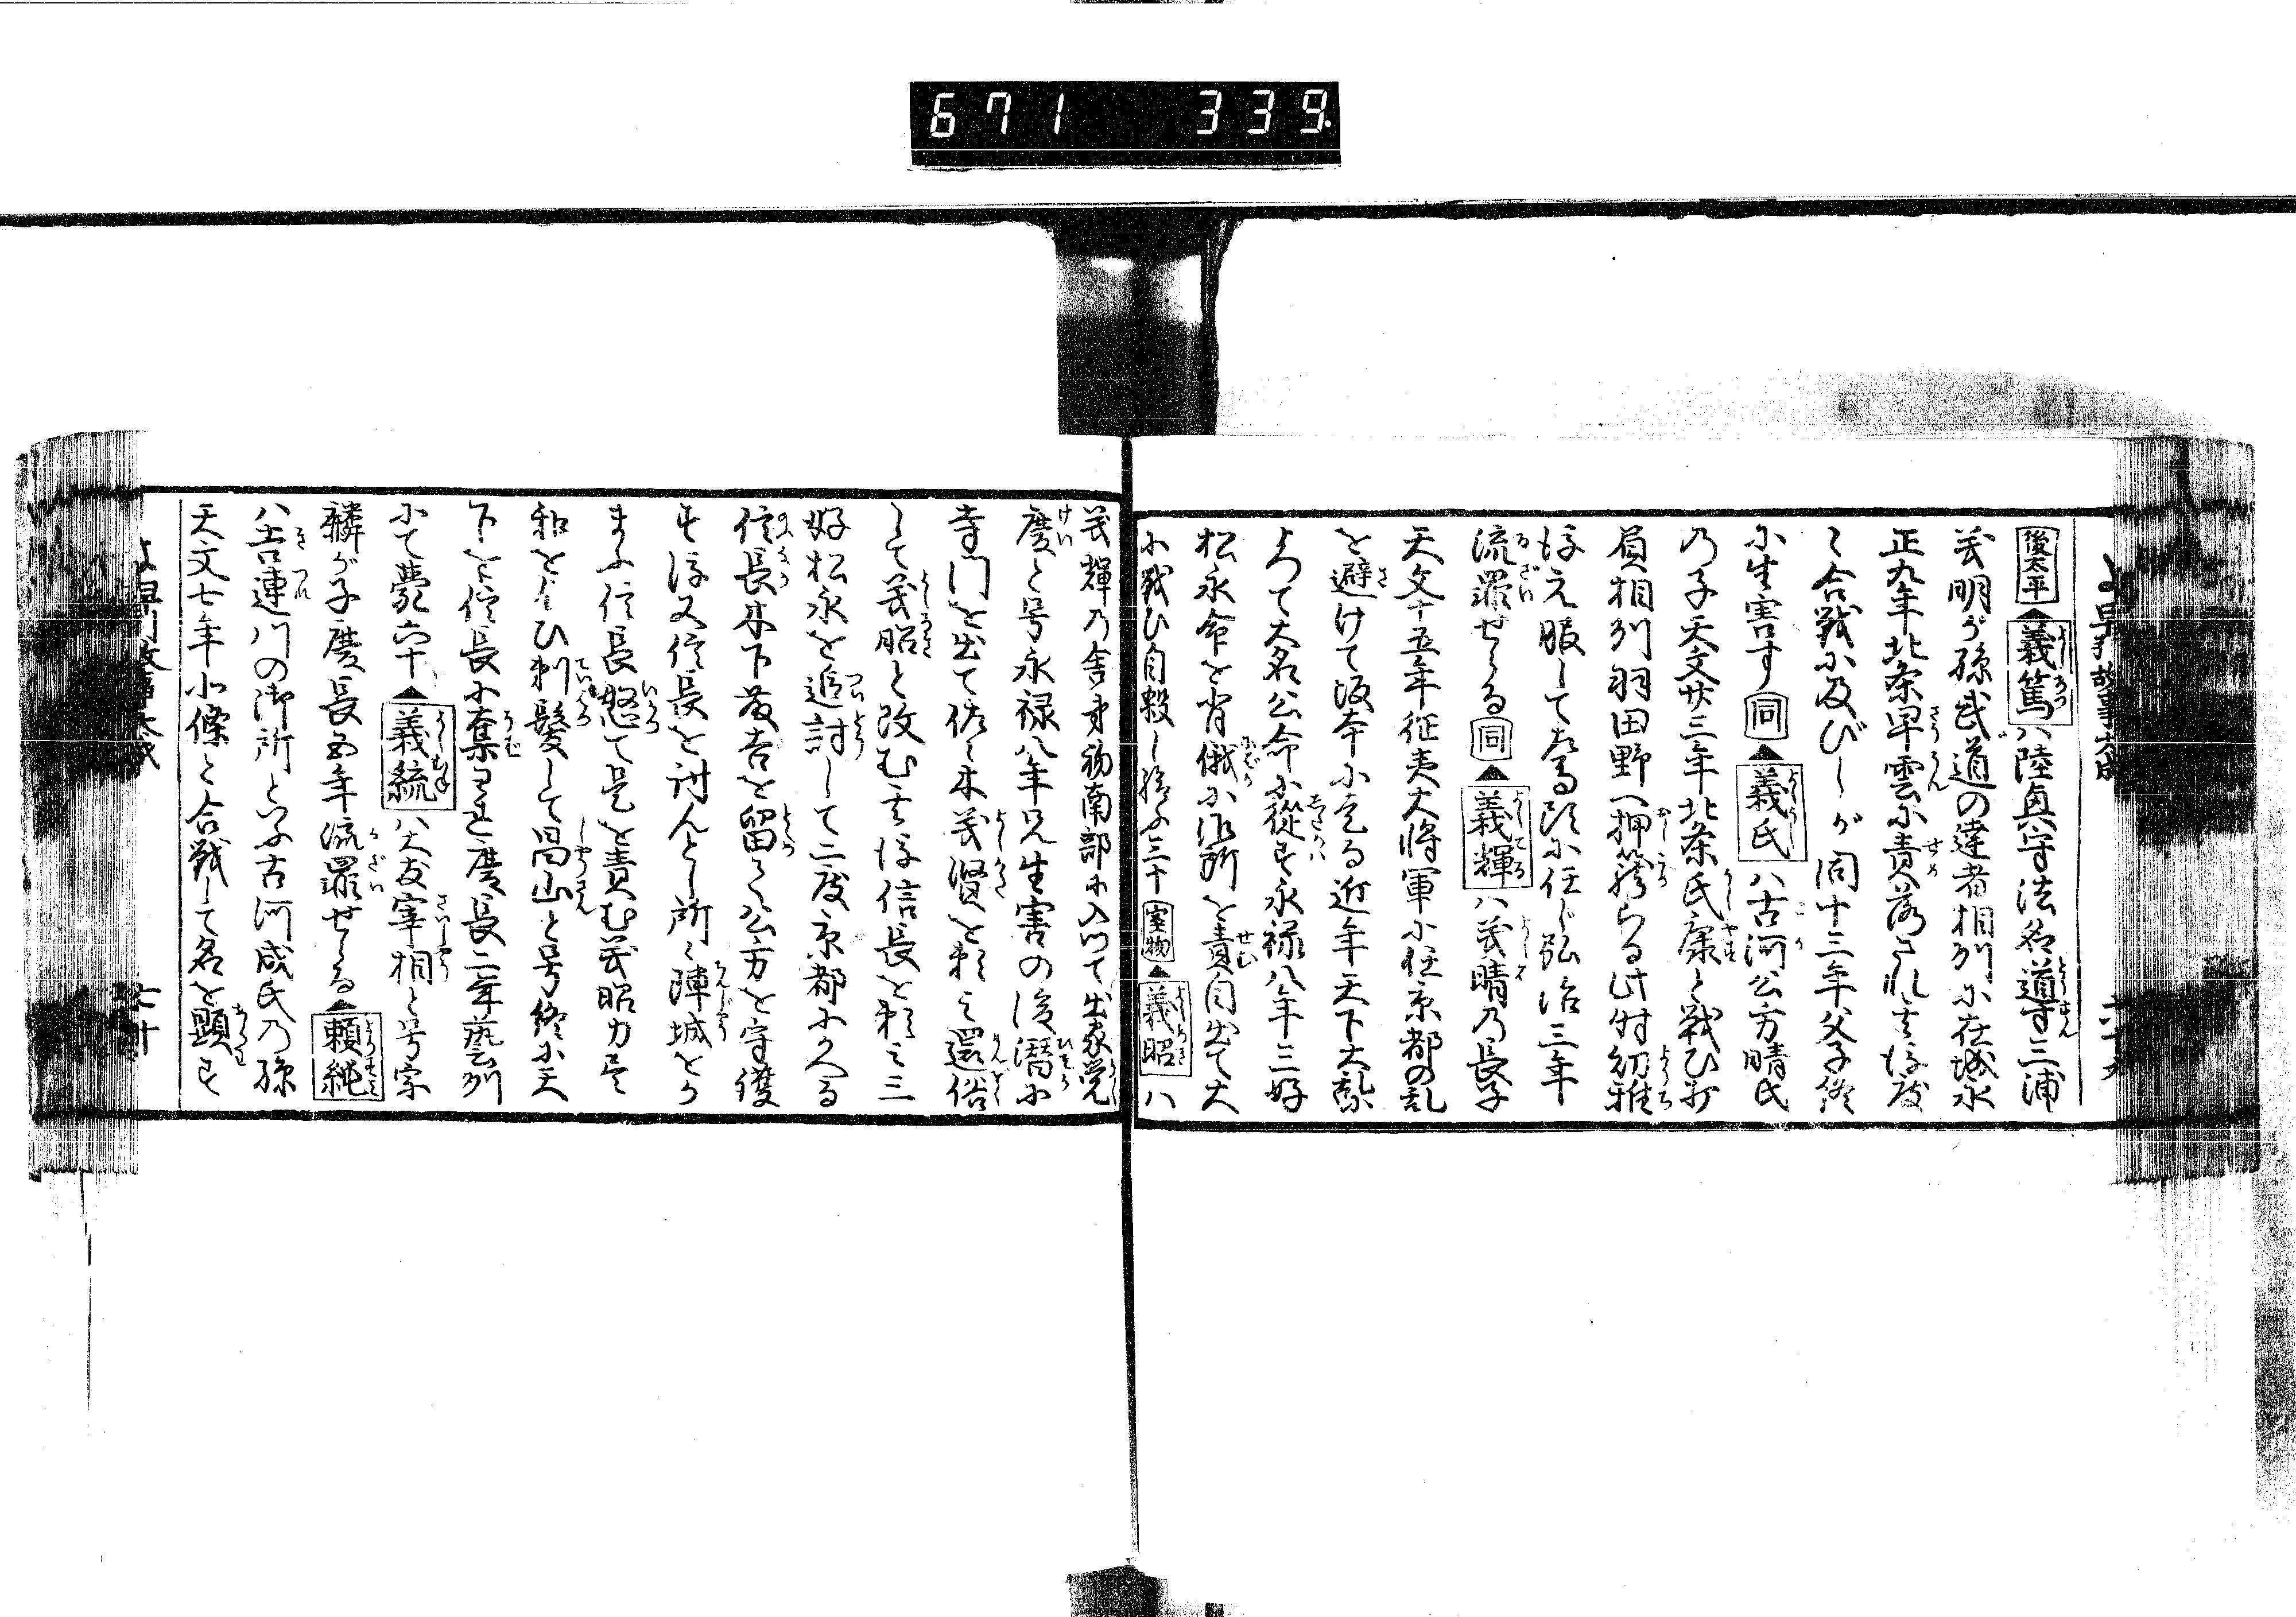 671 339
後太平▲義篤ハ陸奥守法名道寸三浦
義明が孫武道の達者相州に在城永
正九年北条早雲に責落され其後度
〻合戦に及びしが同十三年父子終
に生害す 同▲義氏ハ古河公方晴氏
乃子天文廿三年北条氏康と戦ひ打
負相州羽田野へ押籠らる此時幼雅
後元服して左馬頭に任じ弘治三年
流罪せらる 同▲義輝ハ義晴乃長子
天文十五年征夷大将軍に任京都の乱
を避けて坂本に走る近年天下大乱
よつて大名公命に従はず永禄八年三好
松永命を背俄に御所を責囲出て大
に戦ひ自殺し給ふ三十 室物▲義昭ハ
義輝乃舎弟初南部に入つて出家覚
慶と号永禄八年兄生害の後潜に
寺門を出て佐々木義賢を頼み還俗
して義昭と改む其後信長を頼み三
好松永を追討して二度京都にかへる
信長木下藤吉を留て公方を守護
す後又信長を討んとし所〻陣城をか
まふ信長怒て是を責む義昭力尽
和を乞ひ剃髪して昌山と号終に天
下を信長に奪る慶長二年藝州
にて薨六十 ▲義統ハ大友宰相と号宗
麟が子慶長五年流罪せらる▲頼純
ハ吉連川の御所といふ古河成氏乃孫
天文七年北條と合戦して名を顕す